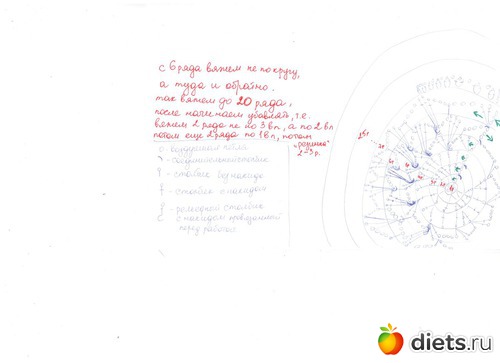 с 6 ряда вяжем не по кругу,
а туда и обратно.
так вяжем до 20 ряда,
после начинаем убавлять, т.е.
вяжем 2 ряда не по 3 вп, а по 2 вп
потом еще 2 ряда по 1 вп, потом
2-3 р.
- воздушная петля
- соединительный столбик
- столбик без накида
- столбик с накидом
- рельефный столбик
с накидом провязанный
перед работой
diets.ru